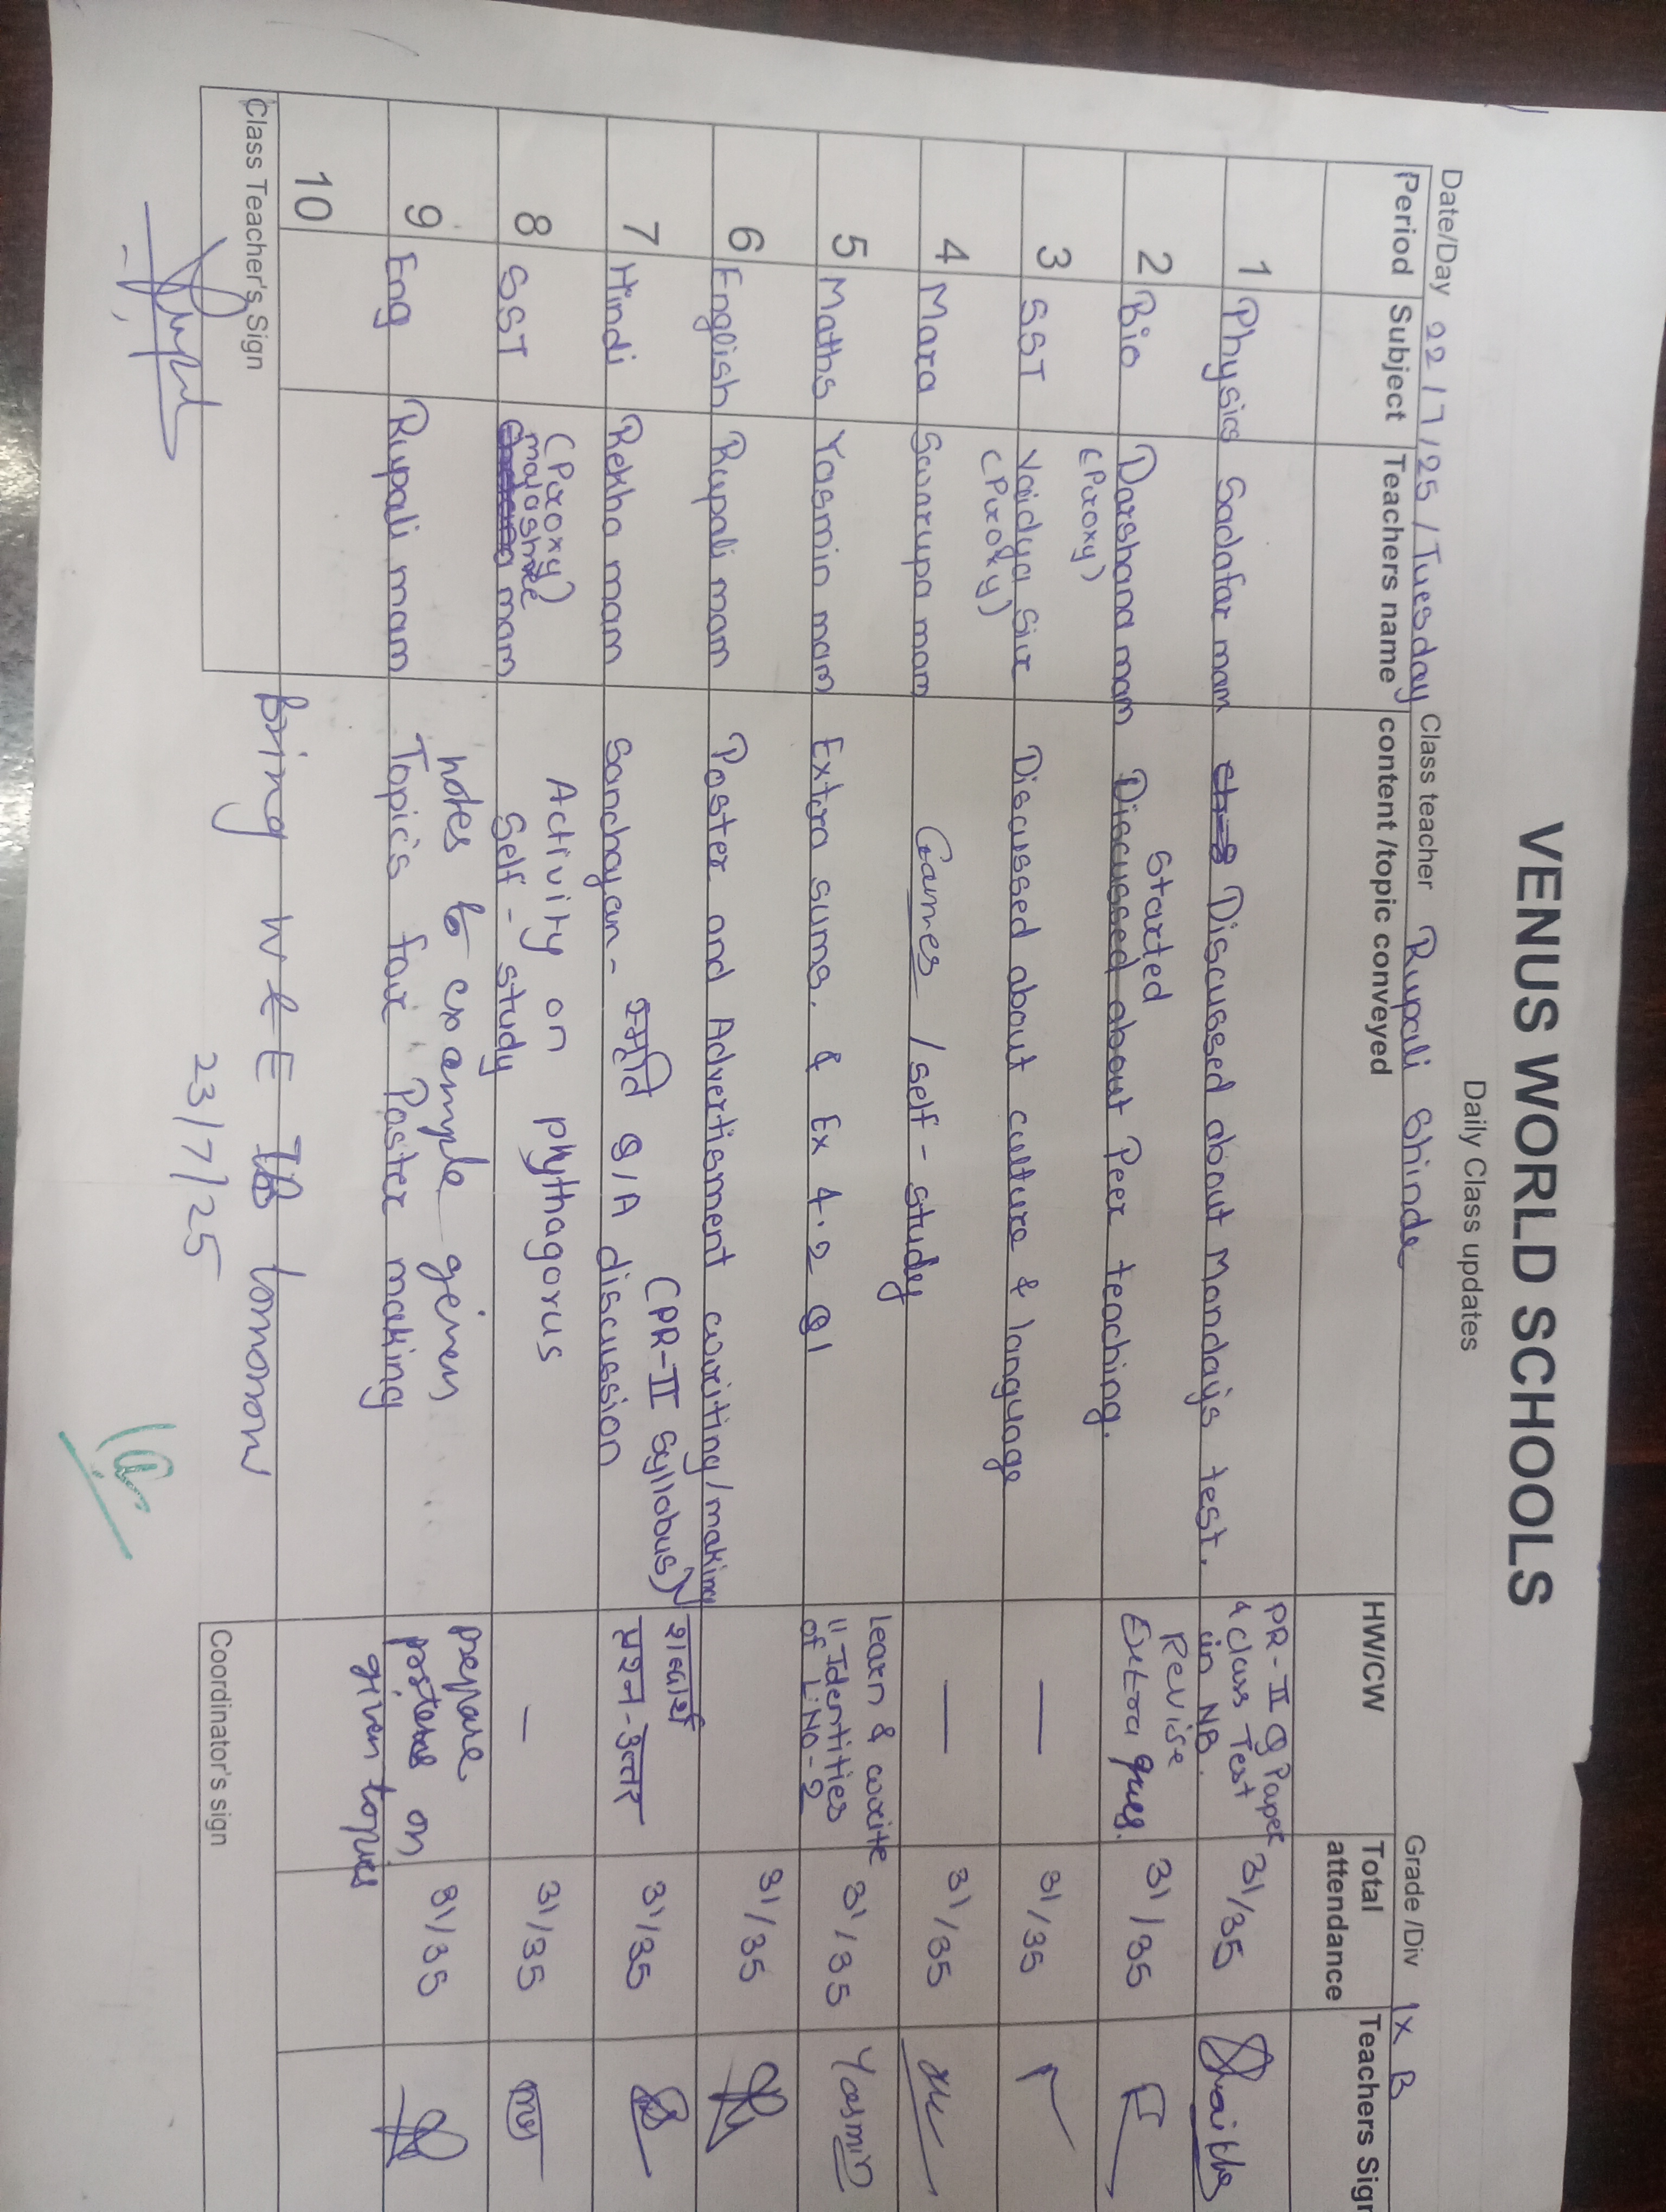 VENUS WORLD SCHOOLS
Daily Class updates
Date/Day 22/7/25/Tuesday Class teacher Rupali Shinde Grade /Div IX B
Period Subject Teachers name content /topic conveyed HW/CW Total attendance Teachers Sign
1 Physics Sadafar mam Discussed about Monday's test. PR-II Q Paper & class Test in NB. 31/35 Shaikh
2 Bio Darshana mam (Proxy) Started Discussed about Peer teaching. Revise Extra ques. 31/35
3 SST Vaidya Sir (Proxy) Discussed about culture & language — 31/35
4 Mara Swarupa mam Games /self-study — 31/35
5 Maths Yasmin mam Extra sums. & Ex 4.2 Q1 Learn & write "Identities of L.NO-2 31/35 Yasmin
6 English Rupali mam Poster and Advertisment writing/making 31/35
7 Hindi Rekha mam Sanchayan- स्मृति Q/A discussion (PR-II syllabus) शब्दार्थ प्रश्न-उत्तर 31/35
8 SST (Proxy) mayashree mam Activity on phythagorus Self-study — 31/35
9 Eng Rupali mam notes & example given Topics for Poster making prepare posters on given topics 31/35
10
bring W & E tomorrow
23/7/25
Class Teacher's Sign Coordinator's sign